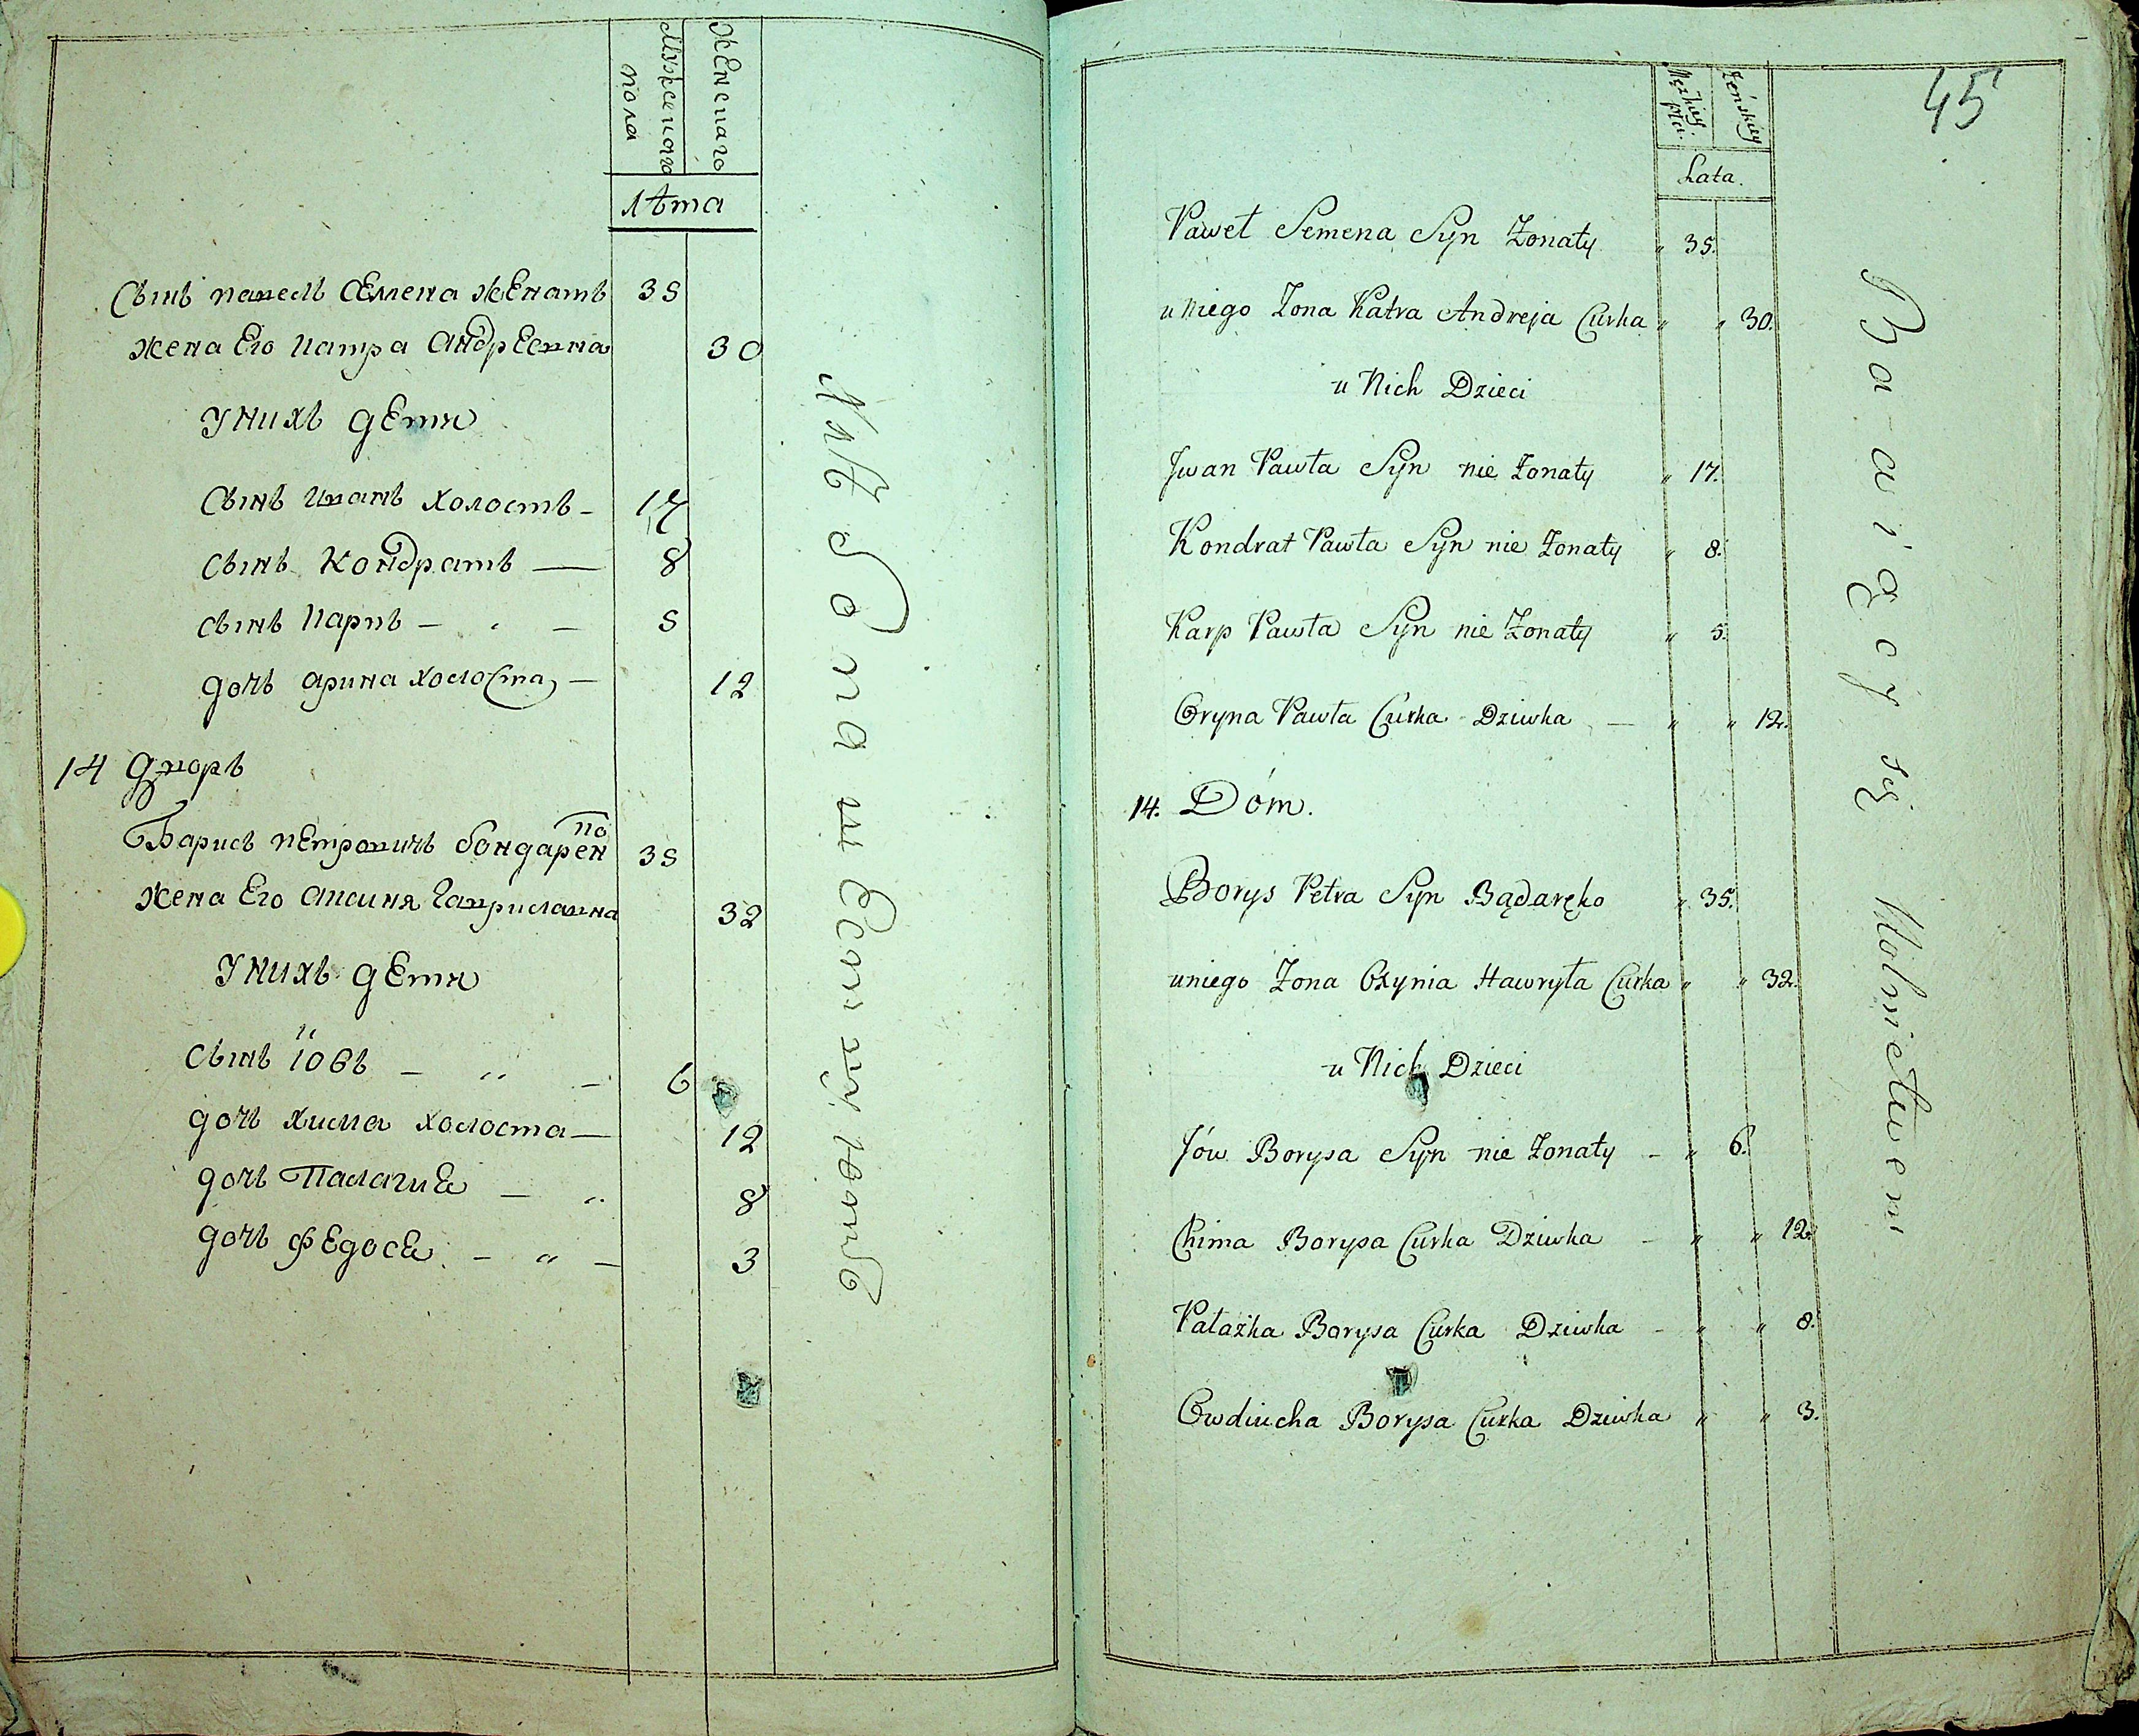 Мужескаго пола
Женскаго
лѣта
Сынъ павелъ Семена женатъ 35
жена Его катра андреевна 30
у нихъ дети
Сынъ иванъ холостъ - 17
сынъ кондратъ — 8
сынъ карпъ — " — 5
дочь арина холоста — 12
14 дворъ
Барисъ петровичъ бондаренко 35
жена Его аксиня гавриловна 32
у нихъ дети
сынъ іовъ — " — 6
дочь хима холоста — 12
дочь Палагие — " 8
дочь федосе — " — 3
45
Męzkiey płci.
Zeńskiey
Lata.
Paweł Semena Syn Zonaty " 35.
u Niego Zona Katra Andreja Curka " " 30.
u Nich Dzieci
Jwan Pawła Syn nie Zonaty " 17.
Kondrat Pawła Syn nie Zonaty " 8.
Karp Pawła Syn nie Zonaty " 5.
Oryna Pawła Curka Dziwka — " " 12.
14. Dóm.
Borys Petra Syn Bądaręko " 35.
u niego Zona Oxynia Hawryła Curka " " 32.
u Nich Dzieci
Jów Borysa Syn nie Zonaty - " 6.
Chima Borysa Curka Dziwka - " " 12.
Pałażka Borysa Curka Dziwka - " " 8.
Owdiucha Borysa Curka Dziwka " " 3.